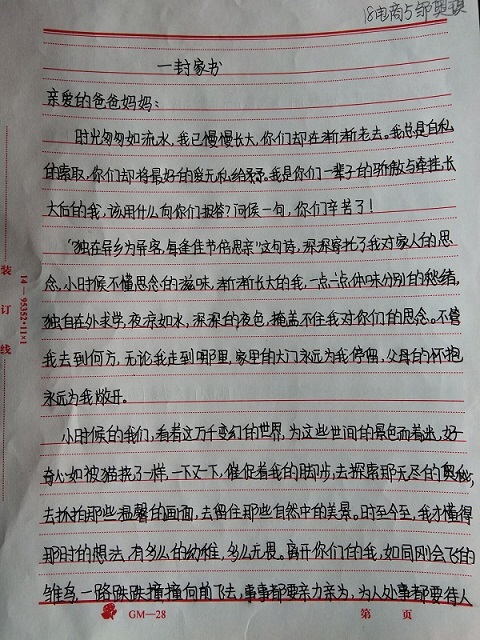 18电商5邹奥琪
一封家书
亲爱的爸爸妈妈：
时光匆匆如流水，我已慢慢长大，你们却在渐渐老去。我总是自私
的索取，你们却将最好的爱无私给予。我是你们一辈子的骄傲与牵挂，长
大后的我，该用什么向你们报答？问候一句，你们辛苦了！
“独在异乡为异客，每逢佳节倍思亲”这句诗，深深寄托了我对家人的思
念，小时候不懂思念的滋味，渐渐长大的我，一点一点体味分别的愁绪，
独自在外求学，夜凉如水，深深的夜色，掩盖不住我对你们的思念。不管
我去到何方，无论我走到哪里，家里的大门永远为我停留，父母的怀抱
永远为我敞开。
小时候的我们，看着这万千变幻的世界，为这些世间的景色而着迷，好
奇心如被猫挠了一样，一下又一下，催促着我的脚步，去探索那无尽的奥秘，
去抓拍那些温馨的画面，去留住那些自然中的美景。时至今至，我才懂得
那时的想法，有多么的幼稚，多么无畏。离开你们的我，如同刚会飞的
雏鸟，一路跌跌撞撞向前飞去，事事都要亲力亲为，为人处事都要待人
装订线
14—95352·11×1
GM—28
第 页